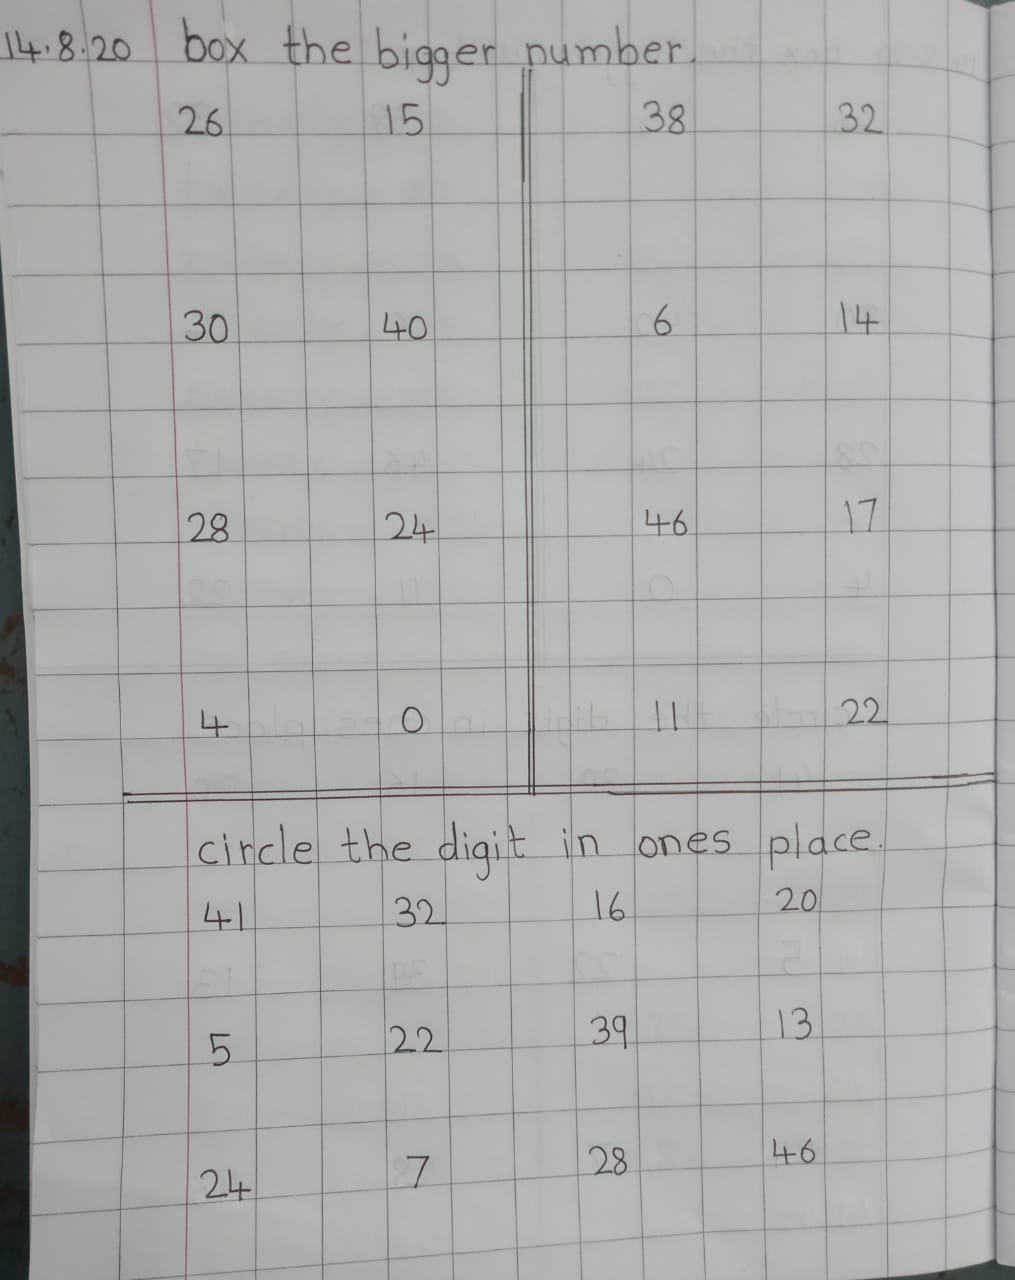 14.8.20 box the bigger number.
26 15 38 32
30 40 6 14
28 24 46 17
4 0 11 22
circle the digit in ones place.
41 32 16 20
5 22 39 13
24 7 28 46